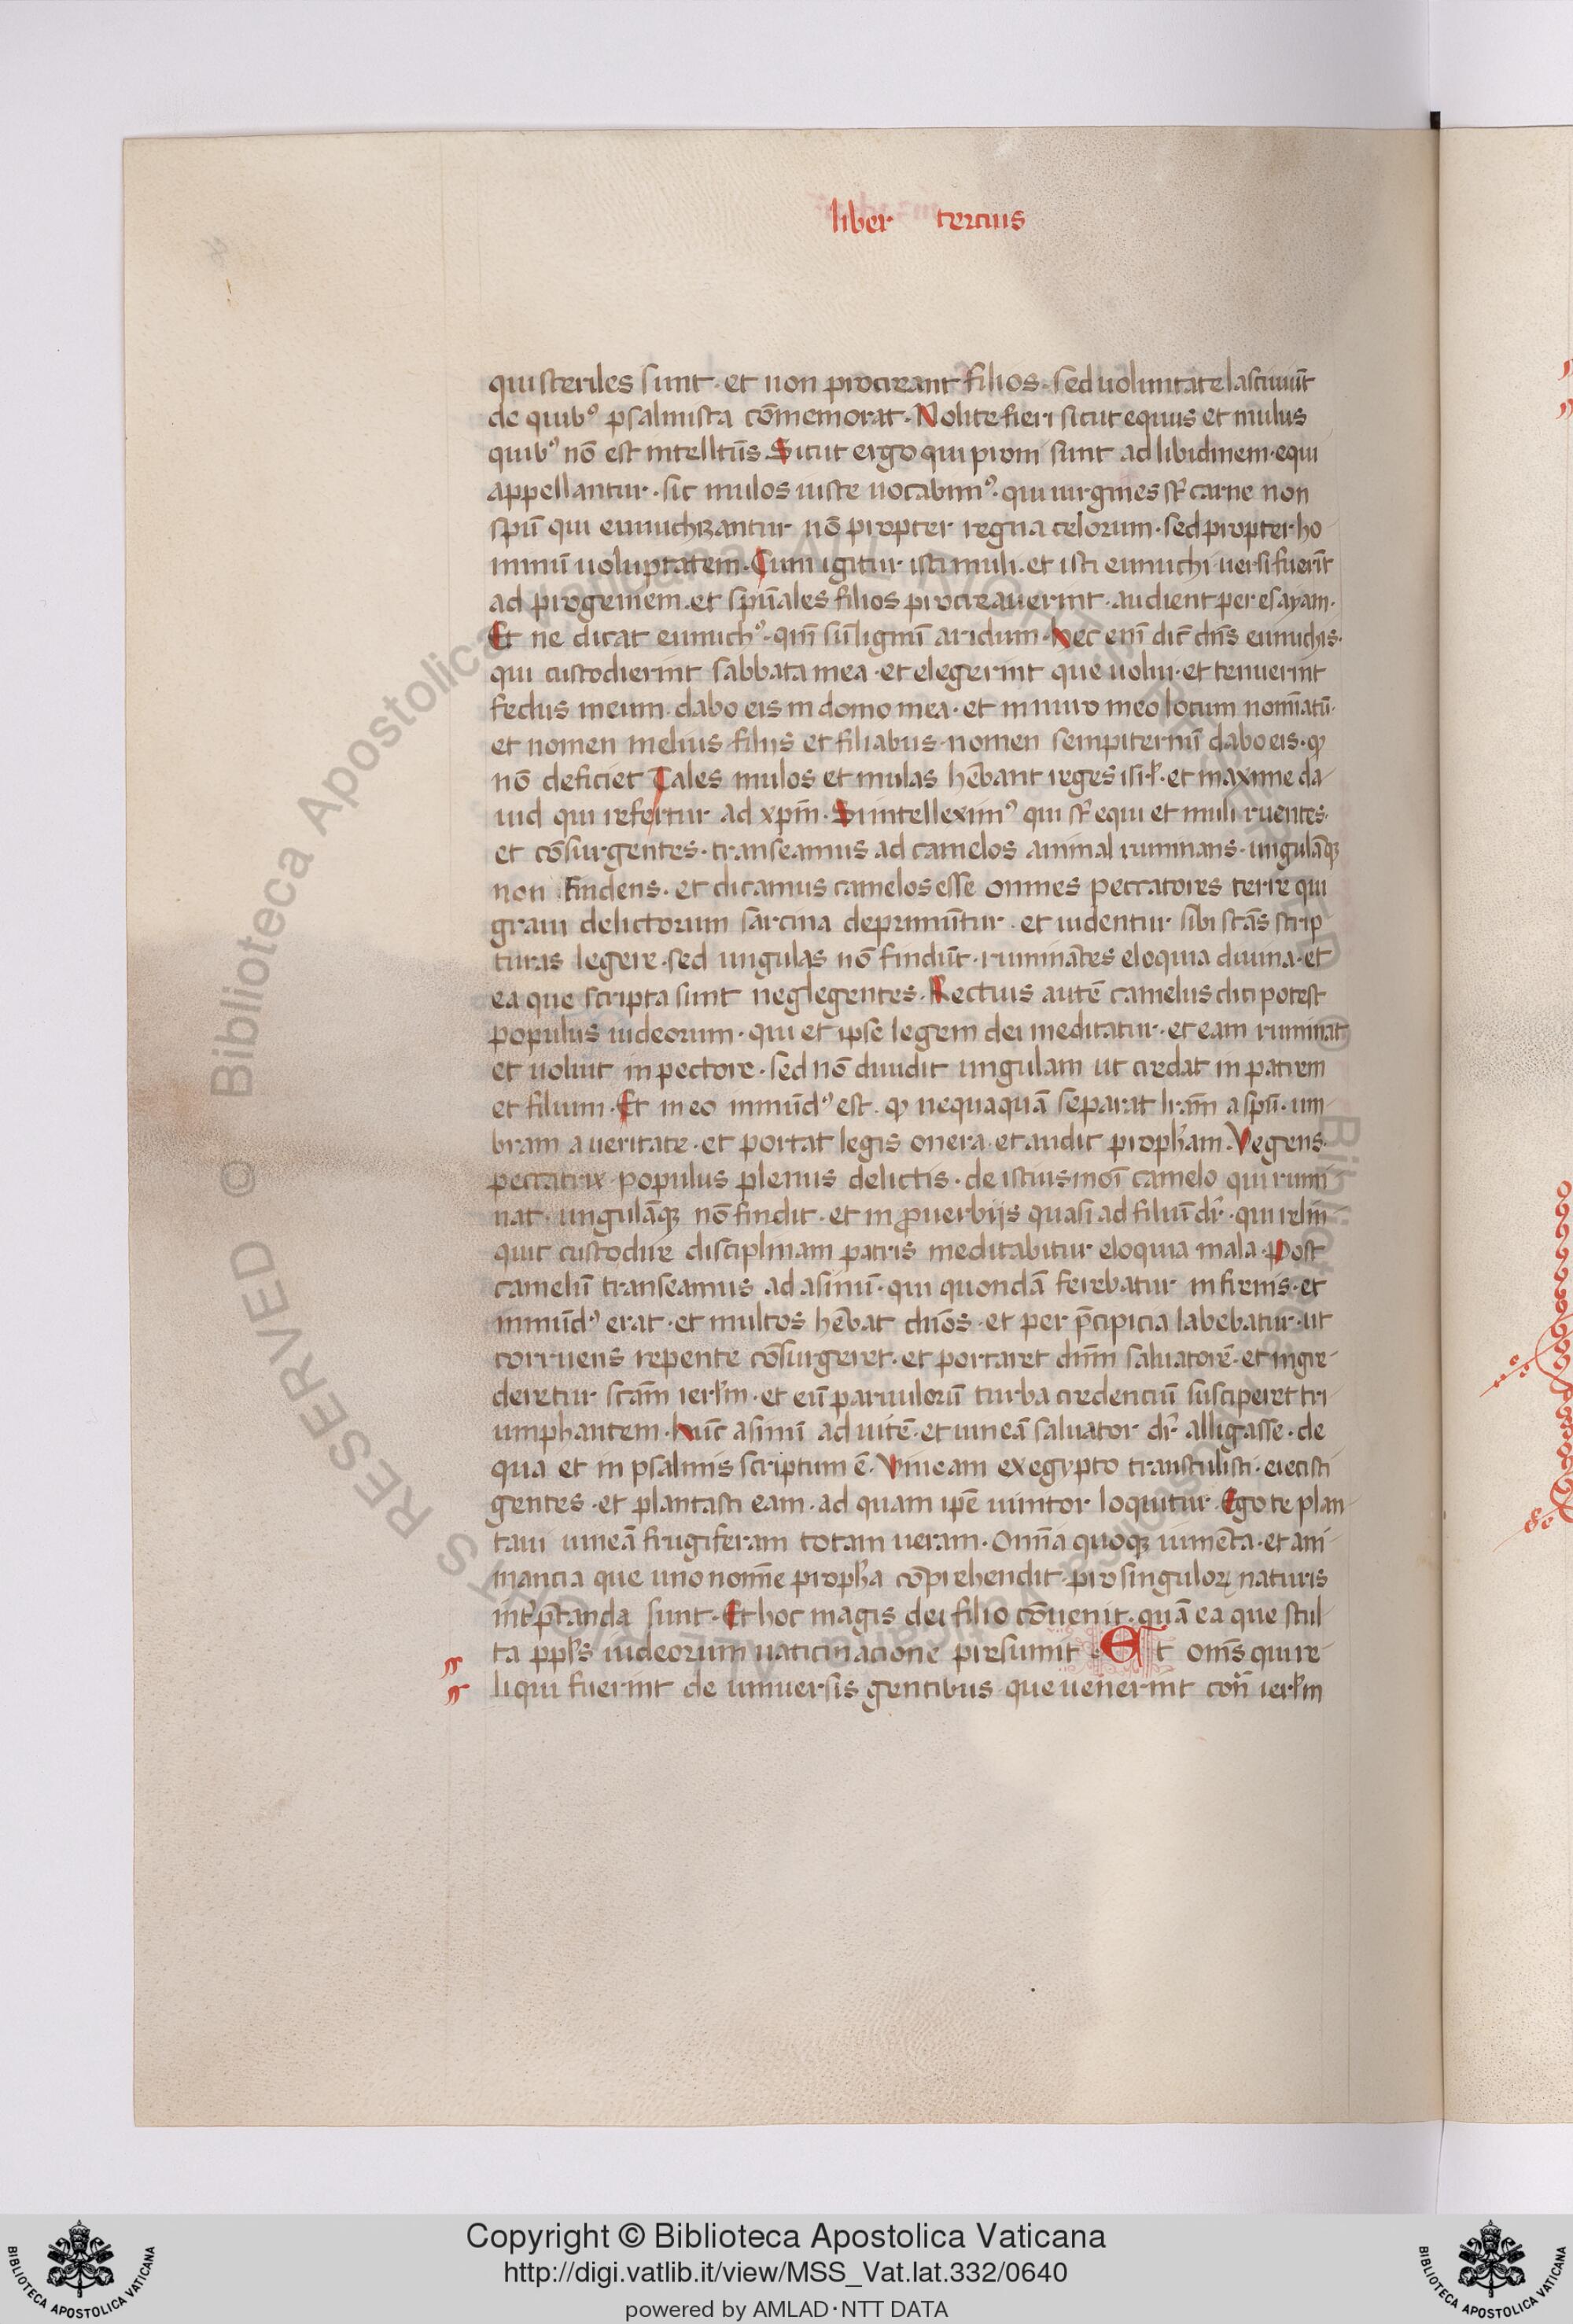 liber tercius
qui steriles sunt · et non procreant filios · sed uoluntate lasciuiūt
de quibꝰ psalmista cōmemorat · Nolite fieri sicut equus et mulus
quibꝰ nō est intellcūs Sicut ergo qui proni sunt ad libidinem · equi
appellantur · sic mulos iuste uocabimꝰ · qui uirgines st̄ carne non
spū qui eunuchizantur nō propter regna celorum · sed propter ho
minū uoluptatem · Cum igitur isti muli · et isti eunuchi uersi fuerīt
ad progeniem · et spūales filios procreauerint · audient per esayam ·
Et ne dicat eunuchꝰ · qm̄ sū lignū aridum · hec enī dic̄ dn̄s eunuchis ·
qui custodierint sabbata mea · et elegerint que uolui · et tenuerint
fedus meum · dabo eis in domo mea · et in muro meo locum nomīatū ·
et nomen melius filiis et filiabus · nomen sempiternū dabo eis · qꝫ
nō deficiet Tales mulos et mulas hēbant reges isrl̄ · et maxime da
uid qui refertur ad xp̄m · Si intelleximꝰ qui st̄ equi et muli ruentes ·
et cōsurgentes · transeamus ad camelos animal ruminans · ungulāqꝫ
non findens · et dicamus camelos esse omnes peccatores terre qui
graui delictorum sarcina deprimūtur · et uidentur sibi scās scrip
turas legere · sed ungulas nō findūt · ruminātes eloquia diuina · et
ea que scripta sunt neglegentes · Rectius autē camelus dici potest
populus iudeorum · qui et ipse legem dei meditatur · et eam ruminat
et uoluit in pectore · sed nō diuidit ungulam ut credat in patrem
et filium · Et in eo inmūdꝰ est · qꝫ nequaquā separat lr̄am a spū · um
bram a ueritate · et portat legis onera · et audit proph̄am · Ve gens
peccatrix · populus plenus delictis · de istiusmōi camelo qui rumi
nat · ungulāqꝫ nō findit · et in ꝓuerbijs quasi ad filiū dr̄ · qui relin
quit custodire disciplinam patris meditabitur eloquia mala · Post
camelū transeamus ad asinū · qui quondā ferebatur infrenis · et
inmūdꝰ erat · et multos hēbat dn̄os · et per p̄cipicia labebatur · ut
corruens repente cōsurgeret · et portaret dn̄m saluatorē · et ingre
deretur scām ierl̄m · et eū paruulorū turba credenciū susciperet tri
umphantem · hūc asinū ad uitē · et uineā saluator dr̄ alligasse · de
qua et in psalmis scriptum ē · Vineam ex egypto transtulisti · eiecisti
gentes · et plantasti eam · ad quam ip̄e uinitor loquitur · Ego te plan
taui uineā frugiferam totam ueram · Omīa quoqꝫ iumēta · et ani
mancia que uno nomīe proph̄a cōprehendit · pro singuloꝝ naturis
int̄pt̄anda sunt · Et hoc magis dei filio cōuenit · quā ea que stul
ta ppl̄s iudeorum uaticinacione presumit · Et omīs qui re
liqui fuerint de uniuersis gentibus que uenerint cont̄ ierl̄m
Copyright © Biblioteca Apostolica Vaticana
http://digi.vatlib.it/view/MSS_Vat.lat.332/0640
powered by AMLAD·NTT DATA